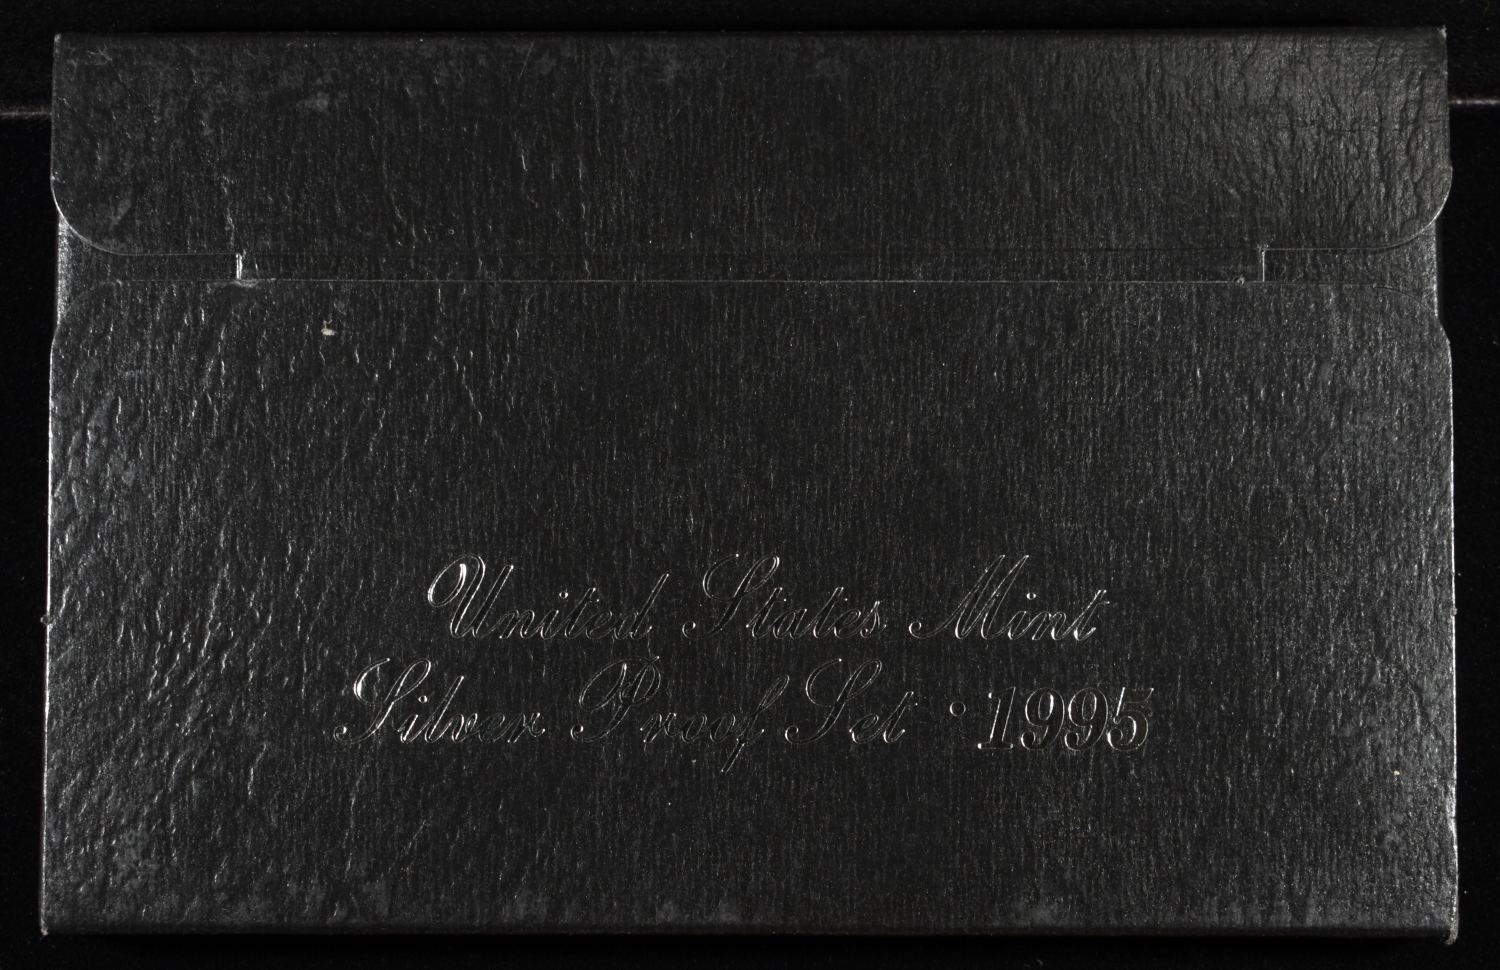 United States Mint
Silver Proof Set · 1995